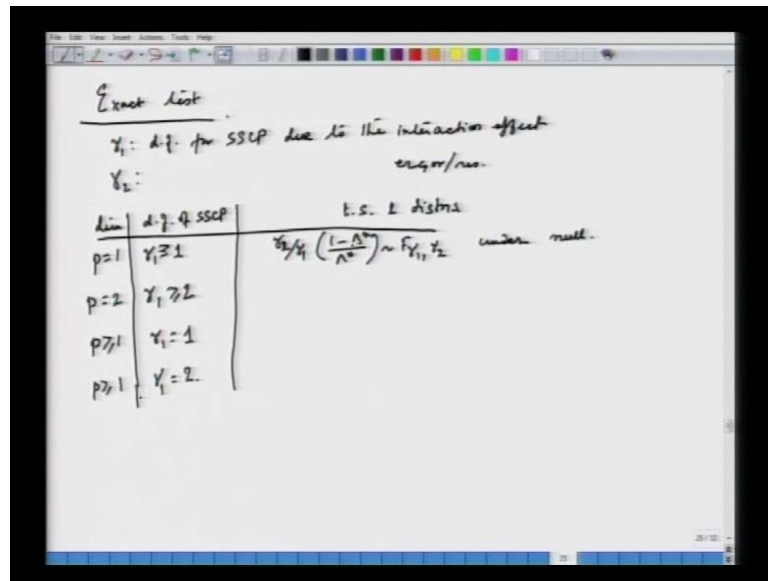 File Edit View Insert Actions Tools Help
Exact test
γ₁: d.f. for SSCP due to the interaction effect
γ₂: error/res.
dim d.f. of SSCP t.s. & distns
p=1 γ₁≥1 γ₂/γ₁ (1-Λ*/Λ*) ~ Fγ₁, γ₂ under null.
p=2 γ₁≥2
p≥1 γ₁=1
p≥1 γ₁=2.
25/32
25